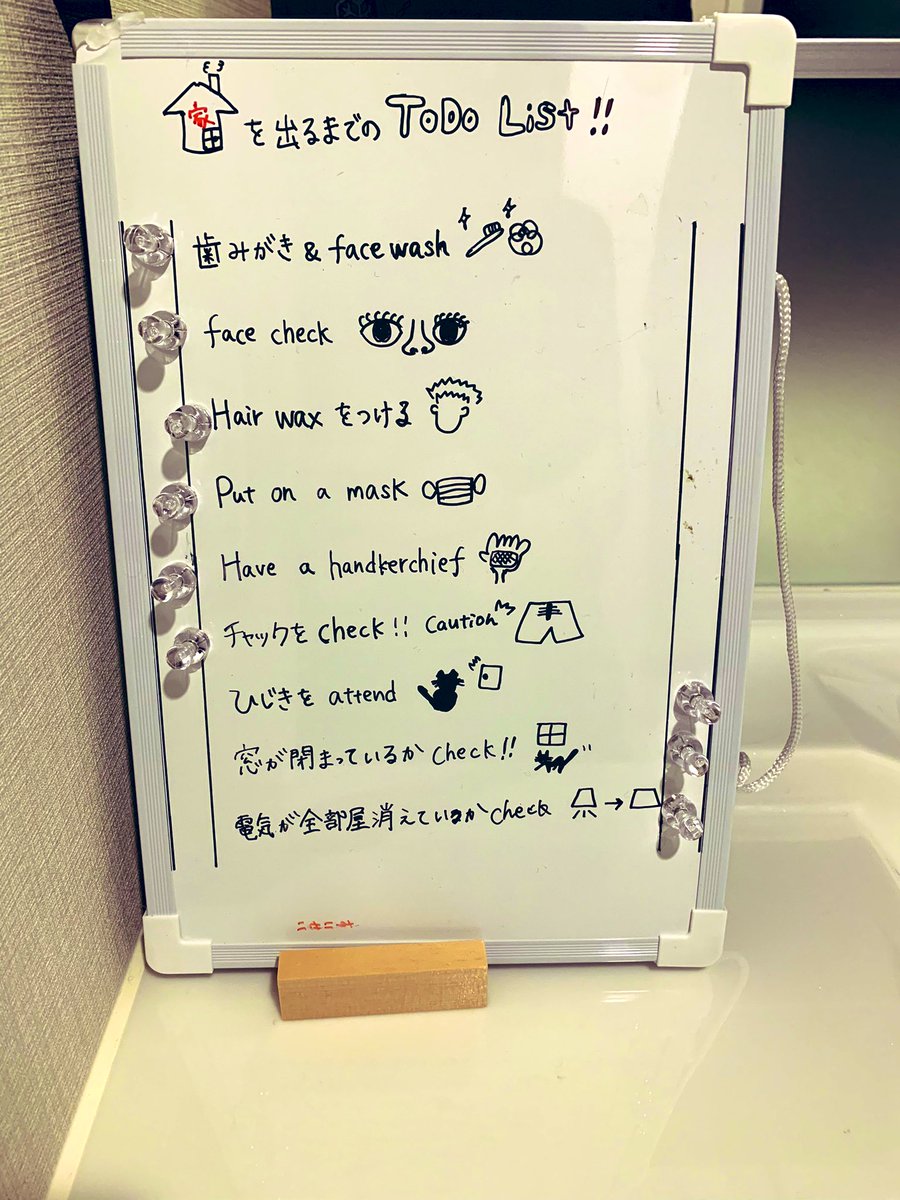 家を出るまでの ToDo List!!
歯みがき & face wash
face check
Hair wax をつける
Put on a mask
Have a handkerchief
チャックを check!! Caution
ひじきを attend
窓が閉まっているか check!!
電気が全部屋消えているか check
すいせい